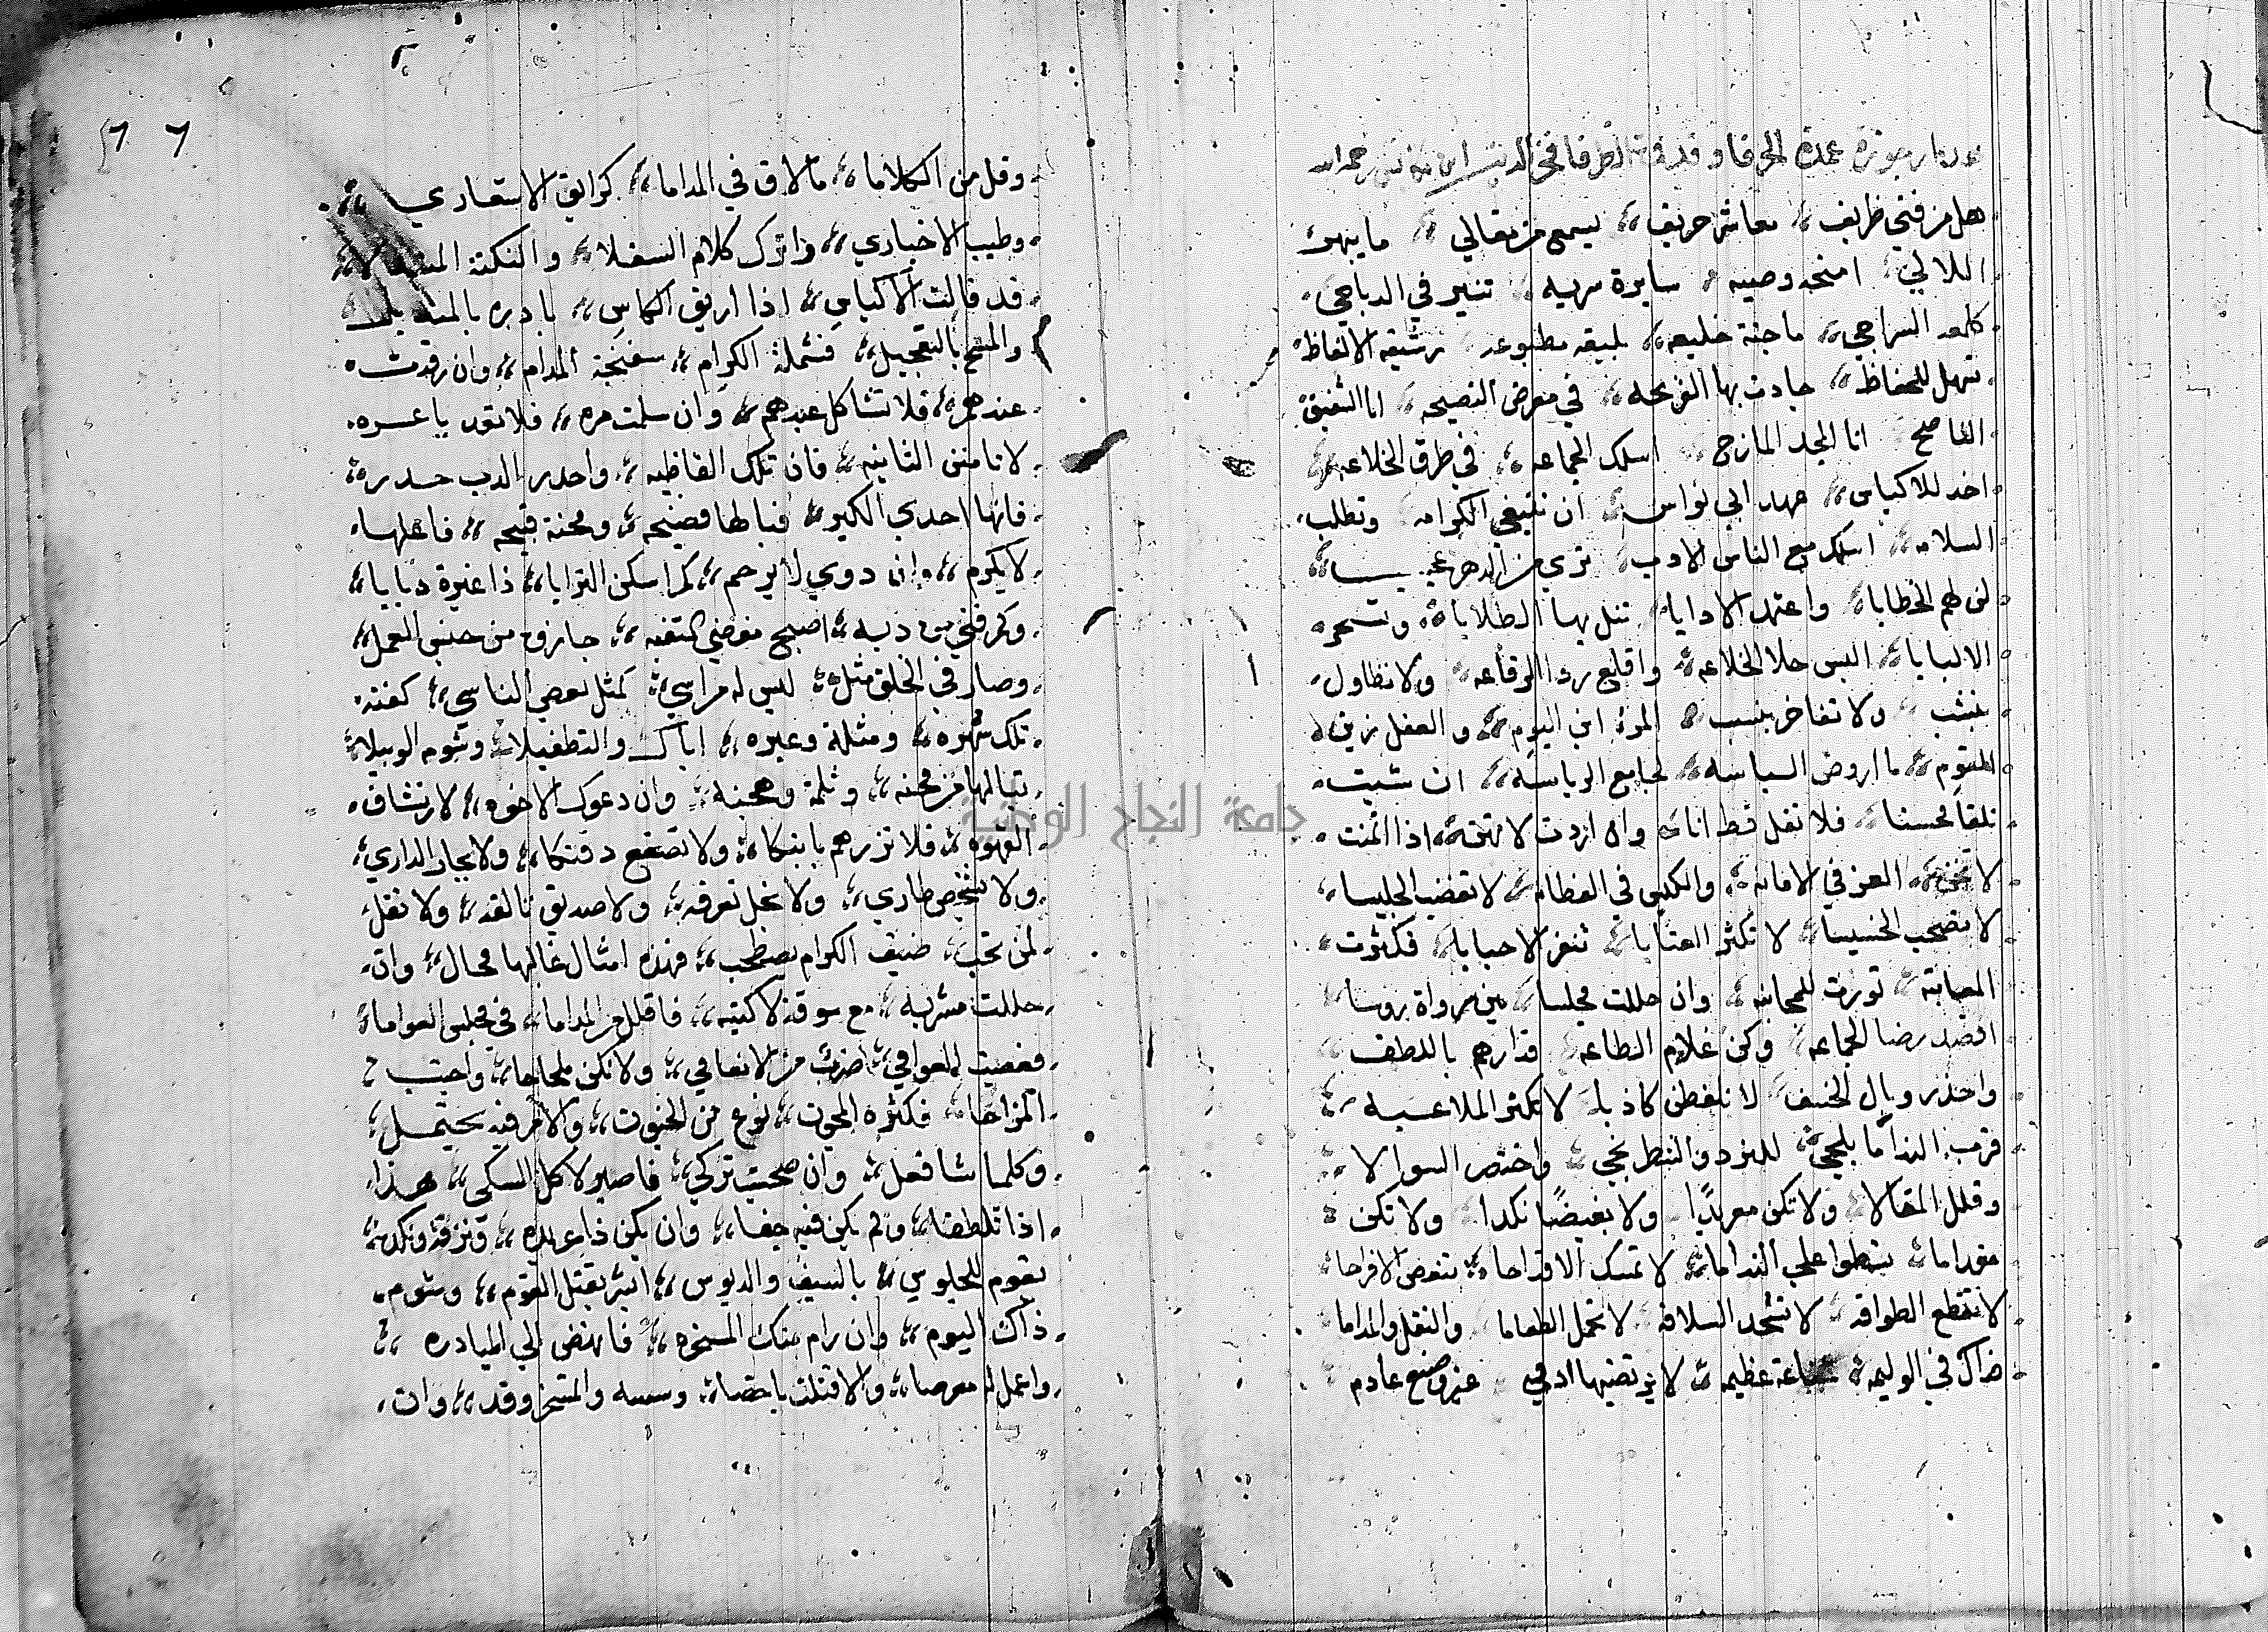 هل من فتي ظريف معاشر حريف يسمع من مقالي ما يبهت
اللالي امنحه وصيه سايرة سريه تنير في الدياجي
كلمعه السراجي ماجنة خليعه بليقه مطبوعه رشيقه الالفاظ
تسهل للحفاظ جادت بها القريحه في معرض النصيحه انا الشفيق
الناصح انا المجد المازح اسلك الجماعه في طرق الخلاعه
اخد للاكياس عهد ابي نواس ان تبتغي الكرامه وتطلب
السلامه اسلك مع الناس الادب تري من الدهر عجب
لن لهم الخطابا واعتمد الادابا تنل بها الطلابا وتسحر
الالبابا البس حلا الخلاعه واقلع ردا الرقاعه ولا تطاول
بنشب ولا تفاخر بنسب المرؤ ابن اليوم والعقل زين
القوم ما اروض السياسه لجامع الرياسه ان شيت
تلقا محسنا فلا تقل قط انا وان اردت لا تهن اذا ائتمنت
لا تخن العز في الامانه والكيس في الفطانه لا تغضب الجليسا
لا تصحب الخسيسا لا تكثر العتابا تنفر الاحبابا فكثرت
المعاتبه تورث المجانبه وان حللت مجلسا بين سرواة روسا
اقصد رضا الجماعه وكن غلام الطاعه ودارهم باللطف
واحذر وبال السخف لا تلفظن كاذبا لا تكثر الملاعبه
قرب الندامى يلجي للنرد والشطرنجي واختصر السوالا
وقلل المقالا ولا تكن معربدا ولا بغيضا نكدا ولا تكن
مقداما تسطوا علي الندامى لا تمسك الاقداحا تنغص الافراحا
لا تقطع الطوافه لا تشحد السلافه لا تحمل الطعاما والنقل والمداما
فذاك في الوليمه شناعة عظيمه لا يرتضيها ادمي غير وضيع عادم
وقل من الكلاما ما لاق في المداما كرايق الاشعاري
وطيب الاخباري واترك كلام السفلا والنكتة
قد قالت الاكياس اذا اريق الكاس بادره بالمنديل
والمسح بالتعجيل فشملة الكرام سفنجة المدام وان رقدت
عندهم فلا تشاكل عبدهم وان سلمت مره فلا تعد يا عره
لا تامنن الثانيه فان تلك القاضيه واحدر الدب حدره
فانها احدي الكبر فيالها فضيحه ومحنة قبيحه فاعلها
لا يكرم وان دوي لا يرحم كم اسكن الترابا ذا غيرة دبابا
وكم فتي من دبه اصبح مفضي الثقبه جازوه من جنس العمل
وصار في الخلق مثل ليس له مراسي كمثل بعض الناسي كفته
تلك شهره ومثلة وعبره اياك والتطفيلا وشومه الوبيلا
تبا لها من محنه وثلمة وهجنه وان دعوك الاخوه لارتشاف
القهوه فلا تزرهم بابنكا ولا تصقع دقنكا ولا بجار الداري
ولا شخص طاري ولا نخل تعرفه ولا صديق تالفه ولا تقل
لمن تحب ضيف الكرام يصطحب فهذه امثال غالبها محال وان
حللت مشربه مع سوقة لا كتبه فاقلل من المداما في مجلس العواما
ولا تكن ملحاحا واجتنب
المزاحا فكثره المجون نوع من الجنون والامر فيه يحتمل
وكلما شا فعل وان صحبت تركي فاصبر لاكل السكي هذا
اذا تلطفا ولم يكن فيه جفا وان يكن ذا عربده ونزقة ونكده
يقوم للجلوس بالسيف والدبوس ابشر بقتل القوم وشوم
ذاك اليوم وان رام منك المسخره فانهض الي المبادره
واعمل له معرصا والا قتلت بالعصا والمسخر وقد وان
جامعة النجاح الوطنية